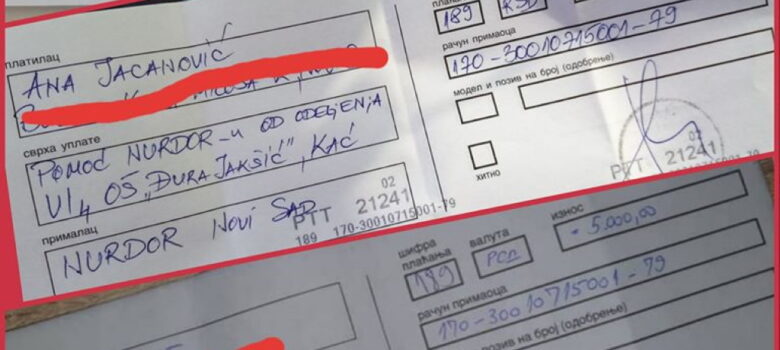 платилац
ANA JACANOVIĆ
сврха уплате
POMOĆ NURDOR-u OD ODELJENJA
VI4 OŠ „ĐURA JAKŠIĆ", KAĆ
прималац
NURDOR NOVI SAD
PTT 21241
02
189 170-30010715001-79
плаћања
189
RSD
рачун примаоца
170-30010715001-79
модел и позив на број (одобрење)
хитно
02
PTT 21241
шифра
плаћања
валута
износ
189
РСД
= 5.000,00
рачун примаоца
170-30010715001-79
модел и позив на број (одобрење)